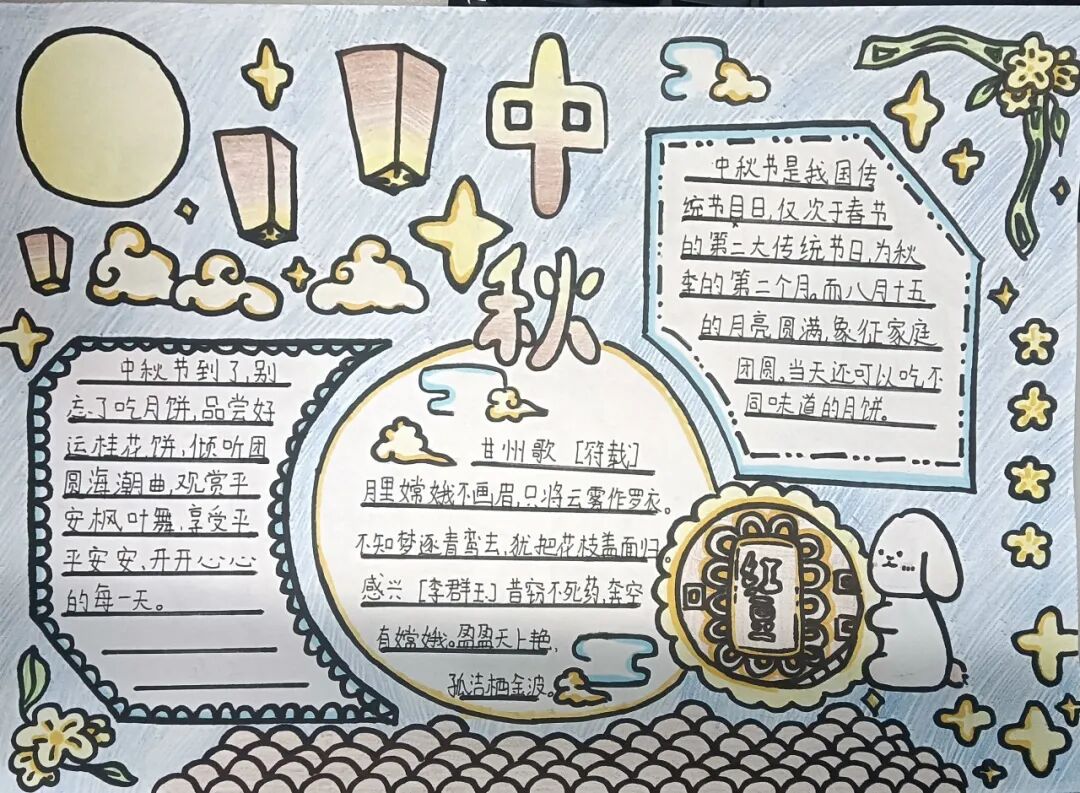 中
秋
中秋节是我国传
统节目日,仅次于春节
的第二大传统节日,为秋
季的第二个月。而八月十五
的月亮圆满,象征家庭
团圆。当天还可以吃不
同味道的月饼。
中秋节到了,别
忘了吃月饼,品尝好
运桂花饼,倾听团
圆海潮曲,观赏平
安枫叶舞,享受平
平安安、开开心心
的每一天。
甘州歌 [符载]
月里嫦娥不画眉,只将云雾作罗衣。
不知梦逐青鸾去,犹把花枝盖面归
感兴 [李群玉] 昔窃不死药,奔空
有嫦娥。盈盈天上艳,
孤洁栖金波。
红豆